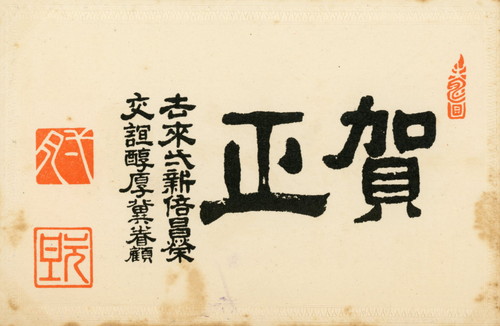 賀正
去來新倍昌榮
交誼醇厚冀眷顧